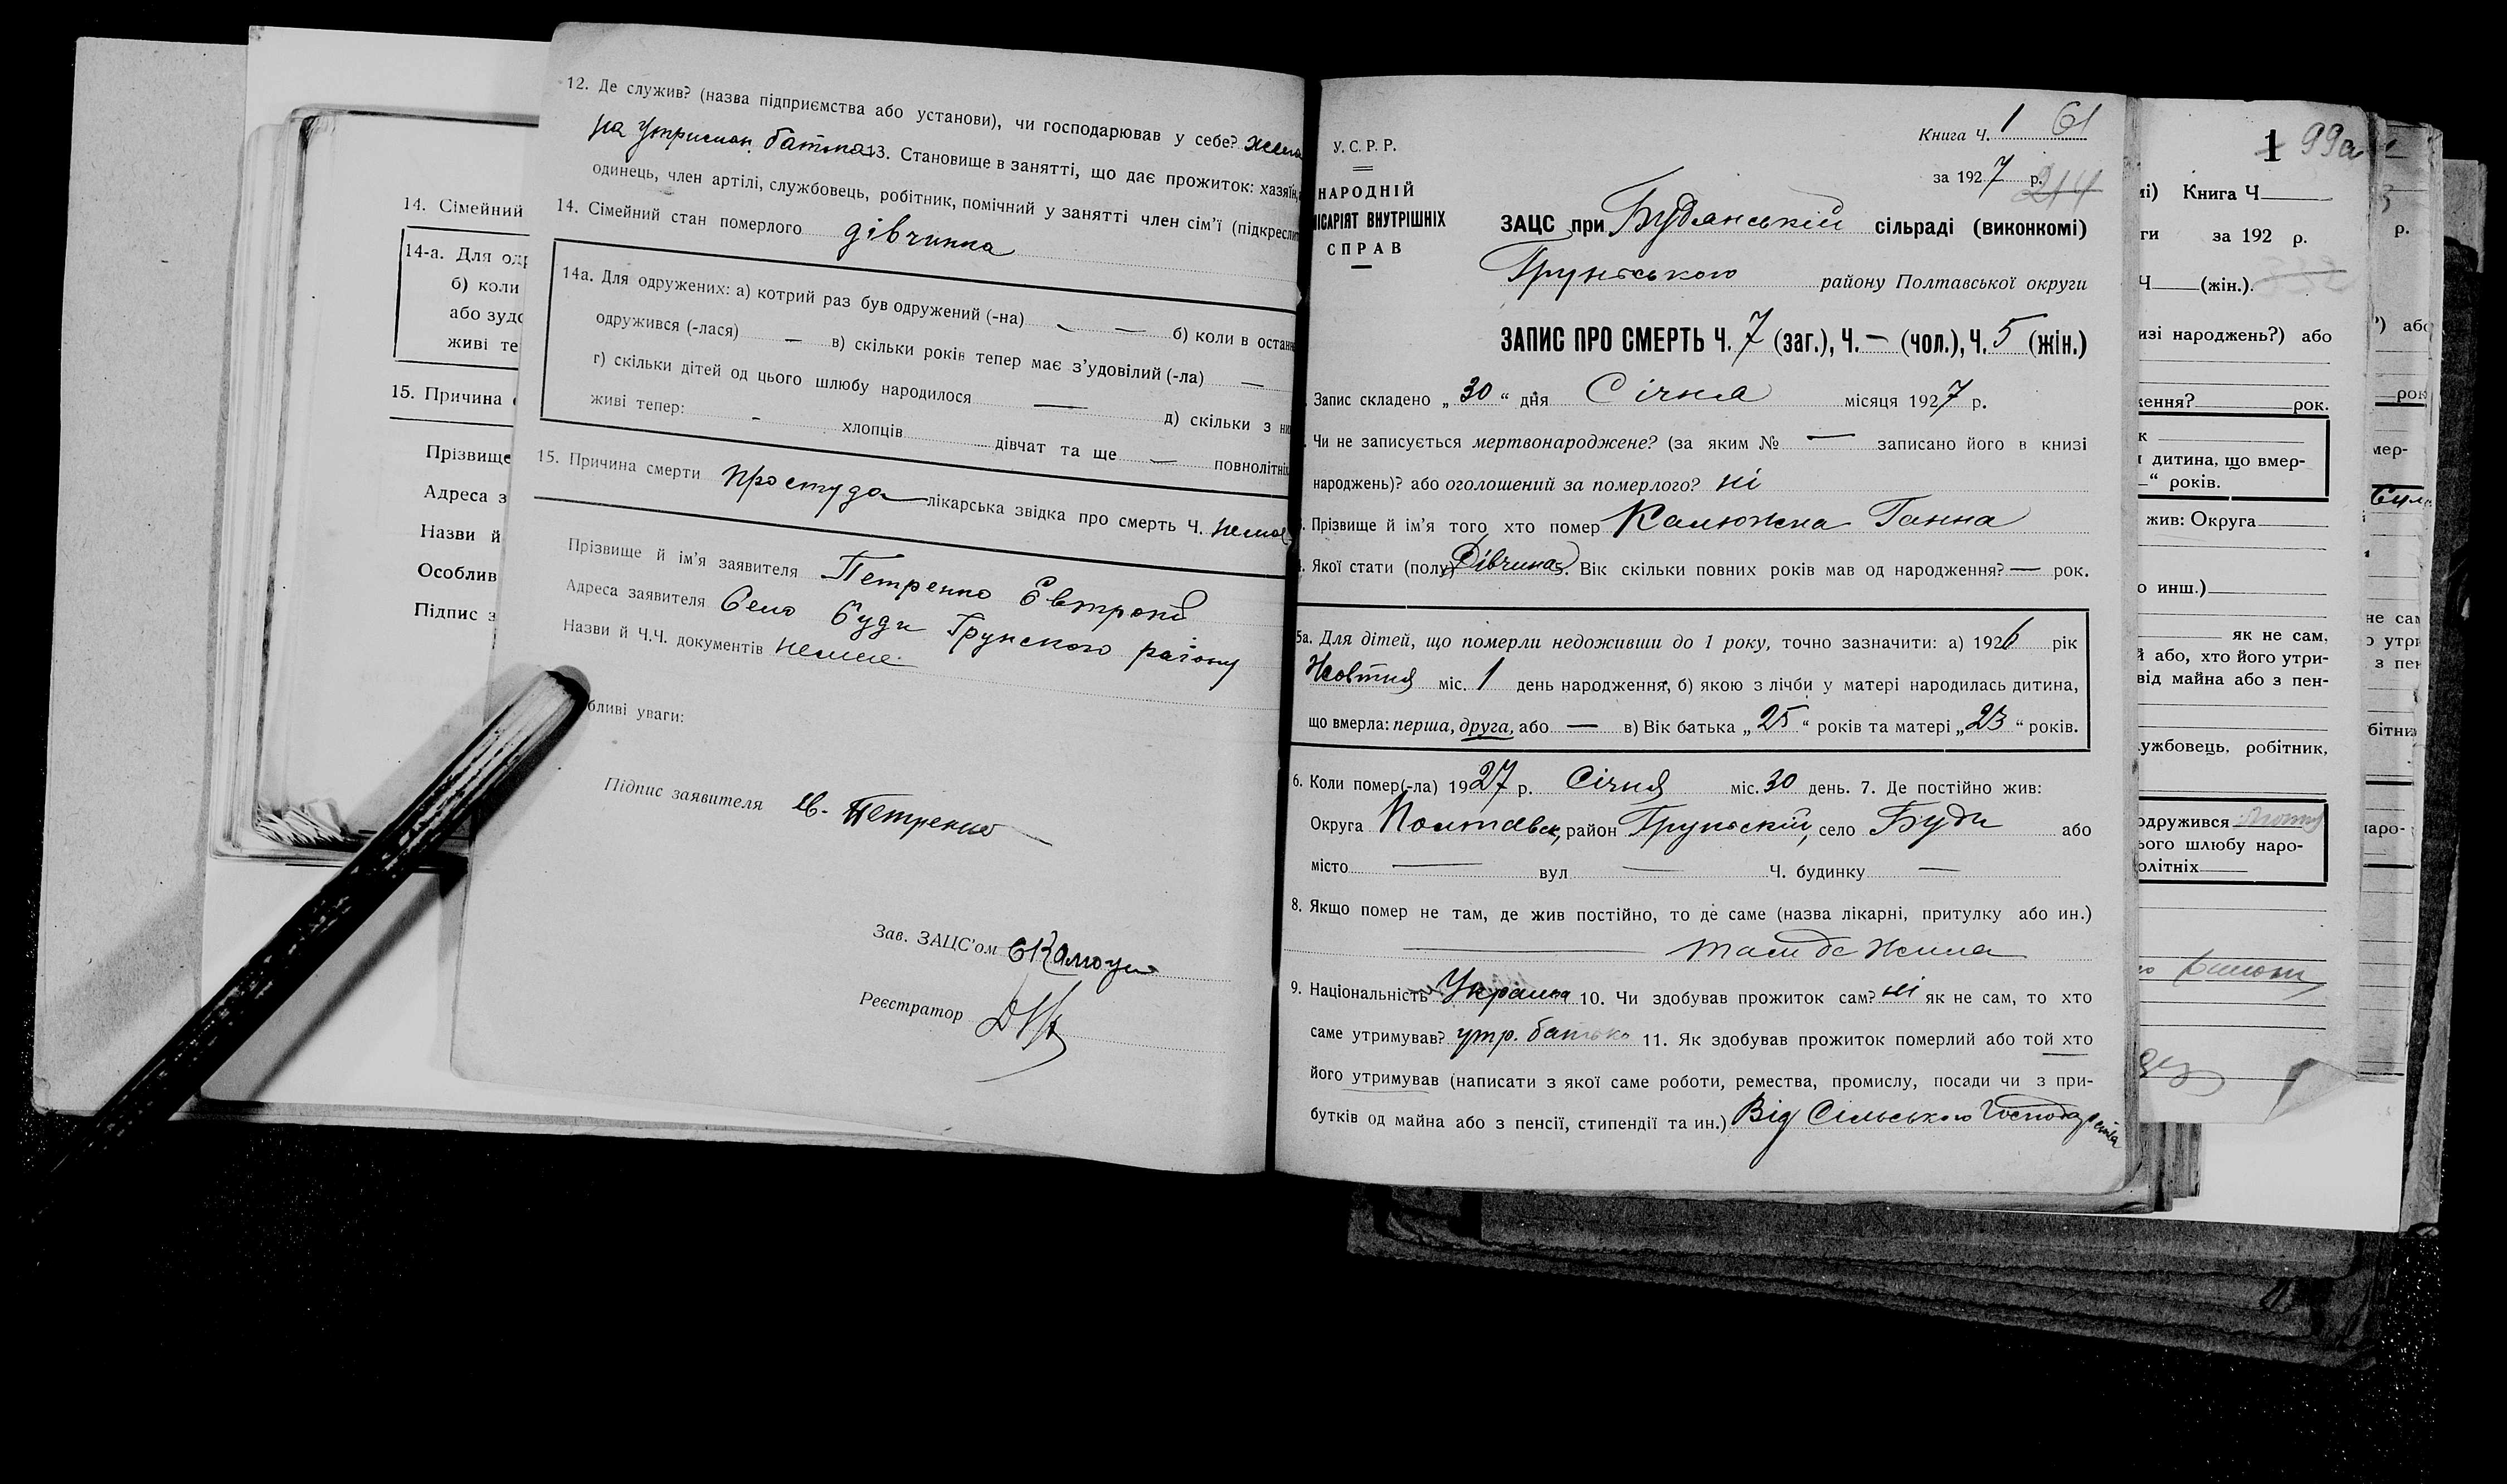 12. Де служив? (назва підприємства або установи), чи господарював у себе? жила
на утриман. батька 13. Становище в занятті, що дає прожиток: хазяїн,
одинець, член артілі, службовець, робітник, помічний у занятті член сім'ї (підкреслит
14. Сімейний стан померлого дівчинка
14а. Для одружених: а) котрий раз був одружений (-на) — б) коли в останн
одружився (-лася) — в) скільки років тепер має з'удовілий (-ла) —
г) скільки дітей од цього шлюбу народилося — д) скільки з ни
живі тепер: - хлопців дівчат та ще — повнолітніх
15. Причина смерти простуда лікарська звідка про смерть Ч. немає
Прізвище й ім'я заявителя Петренко
Адреса заявителя Село Буди Грунского району
Назви й Ч.Ч. документів немає
бливі уваги:
Підпис заявителя Єв. Петренко
Зав. ЗАЦС'ом
Реєстратор
14. Сімейний
14-а. Для од
б) коли
або зудо
живі те
15. Причина
Прізвище
Адреса з
Назви й
Особлив
Підпис з
Книга Ч. 1 61
У.С.Р.Р.
за 1927 р. 214
НАРОДНІЙ
ІСАРІЯТ ВНУТРІШНІХ
СПРАВ
ЗАЦС при Будянській сільраді (виконкомі)
Грунського району Полтавської округи
ЗАПИС ПРО СМЕРТЬ Ч. 7 (заг.), Ч. — (чол.), Ч. 5 (жін.)
Запис складено „30“ дня Січня місяця 1927 р.
Чи не записується мертвонароджене? (за яким № — записано його в книзі
народжень)? або оголошений за померлого? ні
Прізвище й ім'я того, хто помер Калюжна Ганна
Якої стати (полу) Дівчина 5. Вік скільки повних років мав од народження? — рок.
5а. Для дітей, що померли недоживши до 1 року, точно зазначити: а) 1926 рік
Жовтня міс. 1 день народження, б) якою з лічби у матері народилась дитина,
що вмерла: перша, друга, або — в) Вік батька „25“ років та матері „23“ років.
6. Коли помер(-ла) 1927 р. Січня міс. 30 день. 7. Де постійно жив:
Округа Полтавск, район Грунський, село Буди або
місто — вул — Ч. будинку —
8. Якщо помер не там, де жив постійно, то де саме (назва лікарні, притулку або ин.)
— там де жила
9. Національність Українка 10. Чи здобував прожиток сам? ні як не сам, то хто
саме утримував? утр. батько 11. Як здобував прожиток померлий або той хто
його утримував (написати з якої саме роботи, ремества, промислу, посади чи з при-
бутків од майна або з пенсії, стипендії та ин.) Від Сільського Господарства
1 99а
мі) Книга Ч
ги за 192 р.
Ч (жін.).
изі народжень?) або
ження? рок.
к
дитина, що вмер-
“ років.
жив: Округа
о инш.)
як не сам,
й або, хто його утри-
від майна або з пен-
ужбовець, робітник,
одружився
ього шлюбу наро-
олітніх
р.
?) або
рок
мер-
не сам
о утри
з пен
бітни
наро-